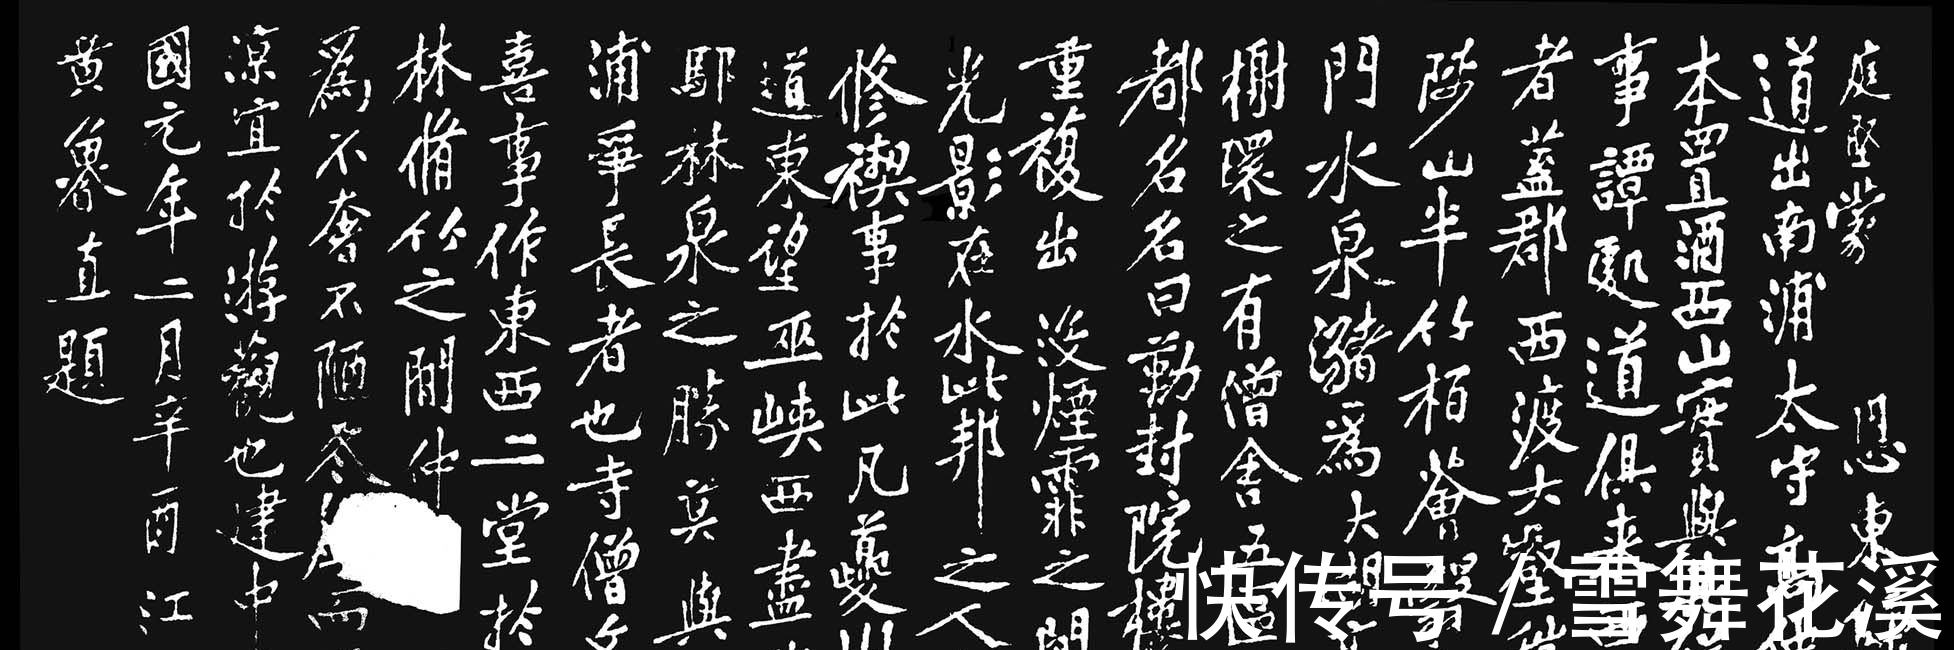 庭堅蒙 恩東
道出南浦太守高
本置酒西山實與
事譚處道俱來
者蓋郡西渡大壑
陟山半竹柏薈翳
門水泉瀦為大
榭環之有僧舍五區
都名名曰勳封院樓
重複出沒煙霏之間
光影在水此邦之人
修禊事於此凡夔州
道東望巫峽西盡
鄢林泉之勝莫與
浦爭長者也寺僧文
喜事作東西二堂於
林脩竹之間仲
為不奢不陋冬而
涼宜於游觀也建中
國元年二月辛酉江
黃魯直題
快传号 / 雪舞花溪